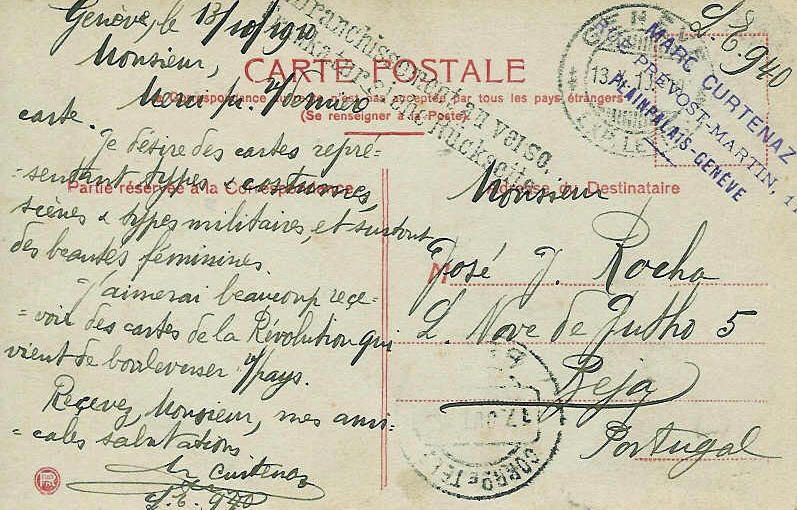 Genève, le 13/10/1910
Monsieur,
Merci pr. v/dernière
carte.
Je désire des cartes repré-
-sentant types & costumes,
scènes & types militaires, et surtout
des beautés féminines.
J'aimerai beaucoup rece-
-voir des cartes de la Révolution qui
vient de bouleverser v/pays.
Recevez, Monsieur, mes ami-
-cales salutations
M Curtenaz
S.E. 940
CARTE POSTALE
La Correspondance au verso n'est pas acceptée par tous les pays étrangers
(Se renseigner à la Poste).
Partie réservée à la Correspondance
Adresse du Destinataire
Affranchissement au verso.
Frankatur siehe Rückseite
GENÈVE
13.
EXP. LET
S.E. 940
MARC CURTENAZ
RUE PRÉVOST-MARTIN, 11
PLAINPALAIS-GENÈVE
Monsieur
M
José J. Rocha
L. Nove de Julho 5
Beja
Portugal
17
CORRO E TEL